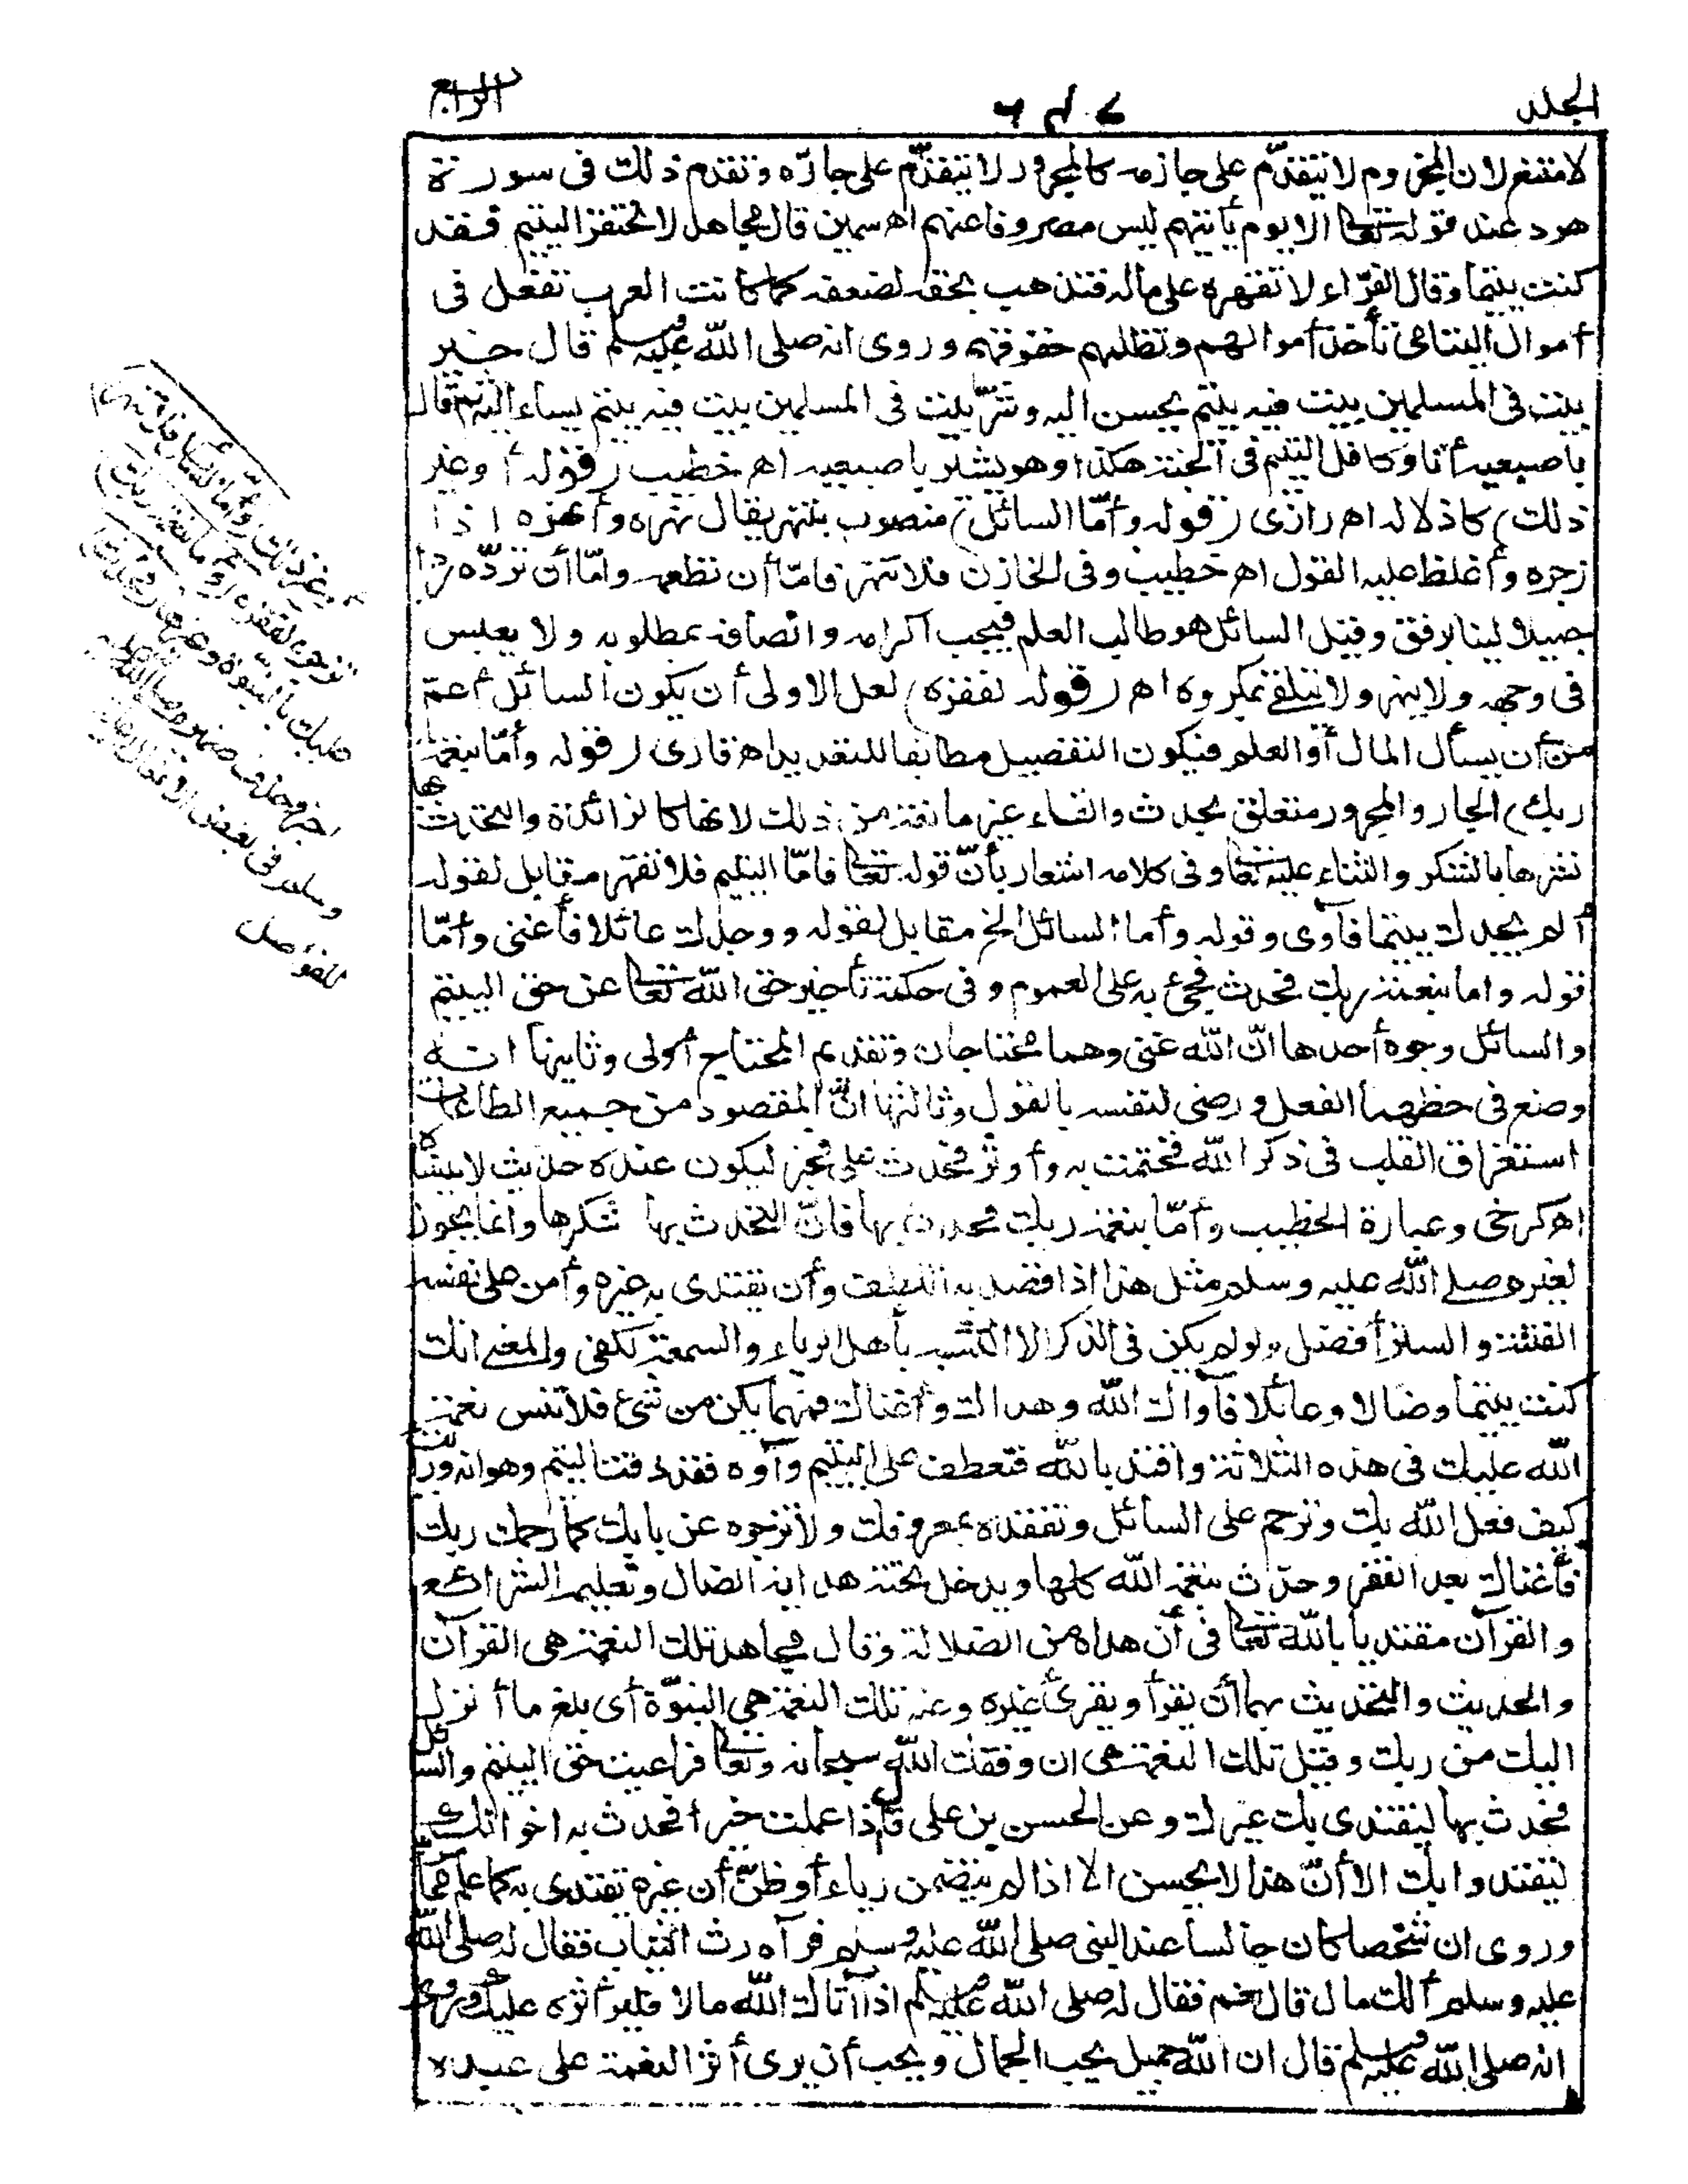 الجلد
٦٤٧
الرابع
لامتنع لان المجزوم لا يتقدّم على جازمه كالمجرور لا يتقدّم على جارّه وتقدم ذلك فى سورة
هود عند قوله تعالى الا يوم يأتيهم ليس مصروفا عنهم اهـ سمين قال مجاهد لا تحتقر اليتيم فقد
كنت يتيما وقال الفرّاء لا تقهره على ماله فتذهب بحقه لضعفه كما كانت العرب تفعل فى
أموال اليتامى تأخذ أموالهم وتظلمهم حقوقهم وروى انه صلى الله عليه وسلم قال خير
بيت فى المسلمين بيت فيه يتيم يحسن اليه وشرّ بيت فى المسلمين بيت فيه يتيم يساء اليه ثم قال
باصبعيه أنا وكافل اليتيم فى الجنة هكذا وهو يشير باصبعيه اهـ خطيب (قوله أو غير
ذلك) كاذلاله اهـ رازى (قوله وأمّا السائل) منصوب بتنهر يقال نهره وأنهره اذا
زجره وأغلظ عليه القول اهـ خطيب وفى الخازن فلا تنهر فامّا أن تطعمه وامّا أن تردّه ردا
جميلا لينا برفق وقيل السائل هو طالب العلم فيجب اكرامه وانصافه بمطلوبه ولا يعبس
فى وجهه ولا ينهر ولا يتلقى بمكروه اهـ (قوله لفقره) لعل الاولى أن يكون السائل أعمّ
من أن يسأل المال أو العلم فيكون التفصيل مطابقا للتعديد اهـ قارى (قوله وأمّا بنعمة
ربك) الجار والمجرور متعلق بحدث والفاء غير مانعة من ذلك لانها كالزائدة والتحدث بها
نشرها بالشكر والثناء عليه تعالى وفى كلامه اشعار بأنّ قوله تعالى فامّا اليتيم فلا تقهر مقابل لقوله
ألم يجدك يتيما فآوى وقوله وأما السائل الخ مقابل لقوله ووجدك عائلا فأغنى وأمّا
قوله واما بنعمة ربك فحدث فجئ به على العموم وفى حكمة تأخير حق الله تعالى عن حق اليتيم
والسائل وجوه أحدها انّ الله غنى وهما محتاجان وتقديم المحتاج أولى وثانيها انه
وضع فى حظهما الفعل ورضى لنفسه بالقول وثالثها انّ المقصود من جميع الطاعات
استغراق القلب فى ذكر الله فختمت به وأوثر فحدث على فخبر ليكون عنده حديث لا ينساه
اهـ كرخى وعبارة الخطيب وأمّا بنعمة ربك فحدث بها فانّ التحدث بها شكرها وانما يجوز
لغيره صلى الله عليه وسلم مثل هذا اذا قصد به اللطف وأن يقتدى به غيره وأمن على نفسه
الفتنة والستر أفضل ولو لم يكن فى الذكر الا التشبه بأهل الرياء والسمعة لكفى والمعنى انك
كنت يتيما وضالا وعائلا فآواك الله وهداك وأغناك فمهما يكن من شئ فلا تنس نعمة
الله عليك فى هذه الثلاثة واقتد بالله فتعطف على اليتيم وآوه فقد ذقت اليتم وهوانه ورأيت
كيف فعل الله بك وترحم على السائل وتفقده بمعروفك ولا تزجره عن بابك كما رحمك ربك
فأغناك بعد الفقر وحدّث بنعمة الله كلها ويدخل تحته هداية الضال وتعليم الشرائع
والقرآن مقتديا بالله تعالى فى أن هداه من الضلالة وقال مجاهد تلك النعمة هى القرآن
والحديث والتحديث بهما أن يقرأ ويقرئ غيره وعنه تلك النعمة هى النبوّة أى بلغ ما أنزل
اليك من ربك وقيل تلك النعمة هى ان وفقك الله سبحانه وتعالى فراعيت حق اليتيم والسائل
فحدث بها ليقتدى بك غيرك وعن الحسن بن على قال اذا عملت خيرا فحدث به اخوانك
ليقتدوا بك الا أنّ هذا لا يحسن الا اذا لم يتضمن رياء أو ظنّ أن غيره يقتدى به كما علم ممّا مرّ
وروى ان شخصا كان جالسا عند النبى صلى الله عليه وسلم فرآه رث الثياب فقال له صلى الله
عليه وسلم ألك مال قال نعم فقال له صلى الله عليه وسلم اذا آتاك الله مالا فلير أثره عليك وروى
انه صلى الله عليه وسلم قال ان الله جميل يحب الجمال ويحب أن يرى أثر النعمة على عبده
أو غير ذلك وأمّا السائل فلا تنهر
تزجره لفقره وأما بنعمة ربك
عليك بالنبوّة وغيرها فحدث
أخبر وحذف ضميره صلى الله عليه
وسلم فى بعض الافعال رعاية
للفواصل